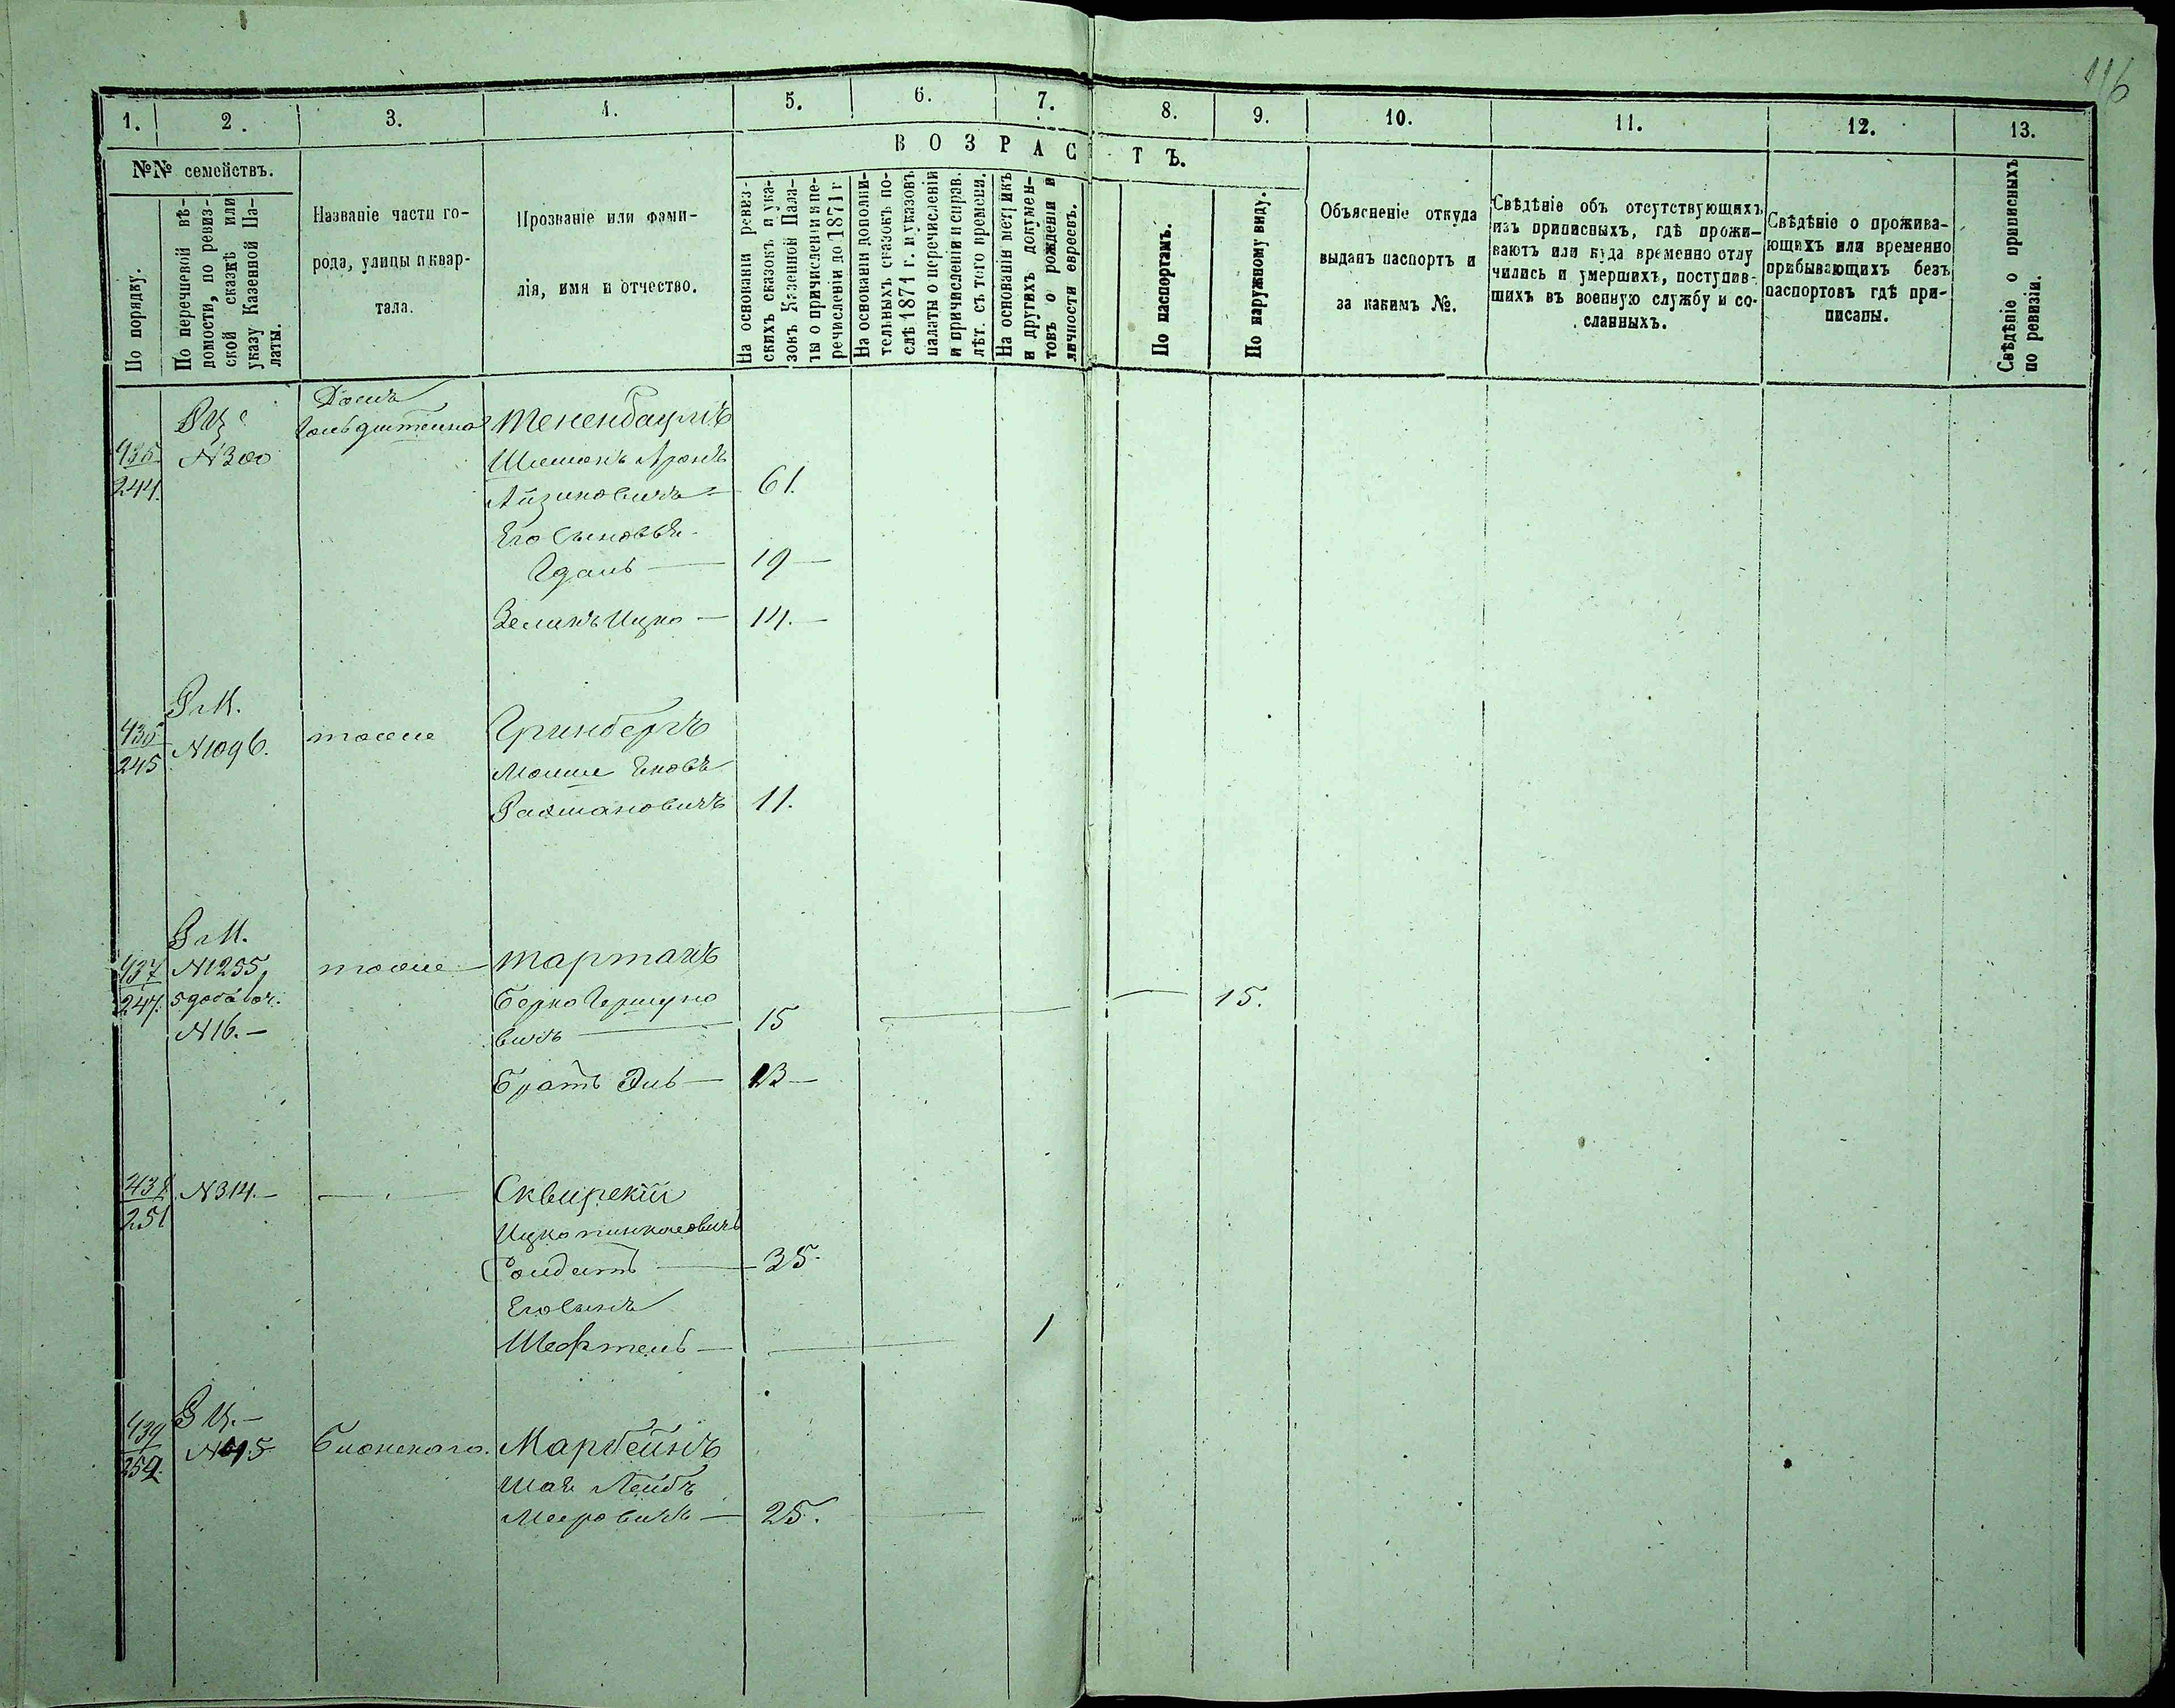 116
1. 2. 3. 4. 5. 6. 7. 8. 9. 10. 11. 12. 13.
№№ семействъ.
В О З Р А С Т Ъ.
По порядку.
По перечневой вѣ-
домости, по ревиз-
ской сказкѣ или
указу Казенной Па-
латы.
Названіе части го-
рода, улицы и квар-
тала.
Прозваніе или фами-
лія, имя и отчество.
На основаніи ревиз-
скихъ сказокъ и ука-
зокъ Казенной Пала-
ты о причисленіи и пе-
речисленіи до 1871 г
На основаніи дополни-
тельныхъ сказокъ по-
слѣ 1871 г. и указовъ
палаты о перечисленіи
и причисленіи и справ.
лѣт. съ того времени.
На основаніи метрикъ
и другихъ докумен-
товъ о рожденіи и
личности евреевъ.
По паспортамъ.
По наружному виду.
Объясненіе откуда
выданъ паспортъ и
за какимъ №.
Свѣдѣніе объ отсутствующихъ
изъ приписныхъ, гдѣ прожи-
ваютъ или куда временно отлу
чились и умершихъ, поступив-
шихъ въ военную службу и со-
сланныхъ.
Свѣдѣніе о прожива-
ющихъ или временно
прибывающихъ безъ
паспортовъ гдѣ при-
писаны.
Свѣдѣніе о приписныхъ
по ревизіи.
435
244.
№ 300
Домъ
Гольдштейна
Тененбаумъ
Шлемонъ Аронъ
Айзиковичъ — 61.
Его Сыновья
Гдаль — 19 —
Зеликъ Ицко — 14. —
436
245
Р. М.
№ 1096.
тоже
Гринбергъ
Мошке Яковъ
Рахмановичъ 11.
437
247.
Р. М.
№ 1255,
5 добавоч.
№ 16. —
тоже
Тартакъ
Берко Гершко
вичъ — 15 — 15.
Братъ Эль — 13 —
438
251
№ 314. —
Сквирскій
Ицко Пинхасовичъ
Солдатъ — 35.
Его Сынъ
Шефтель — 1
439
252.
№ 415
Блонскаго.
Марбейнъ
Шая Лейбъ
Мееровичъ — 25.